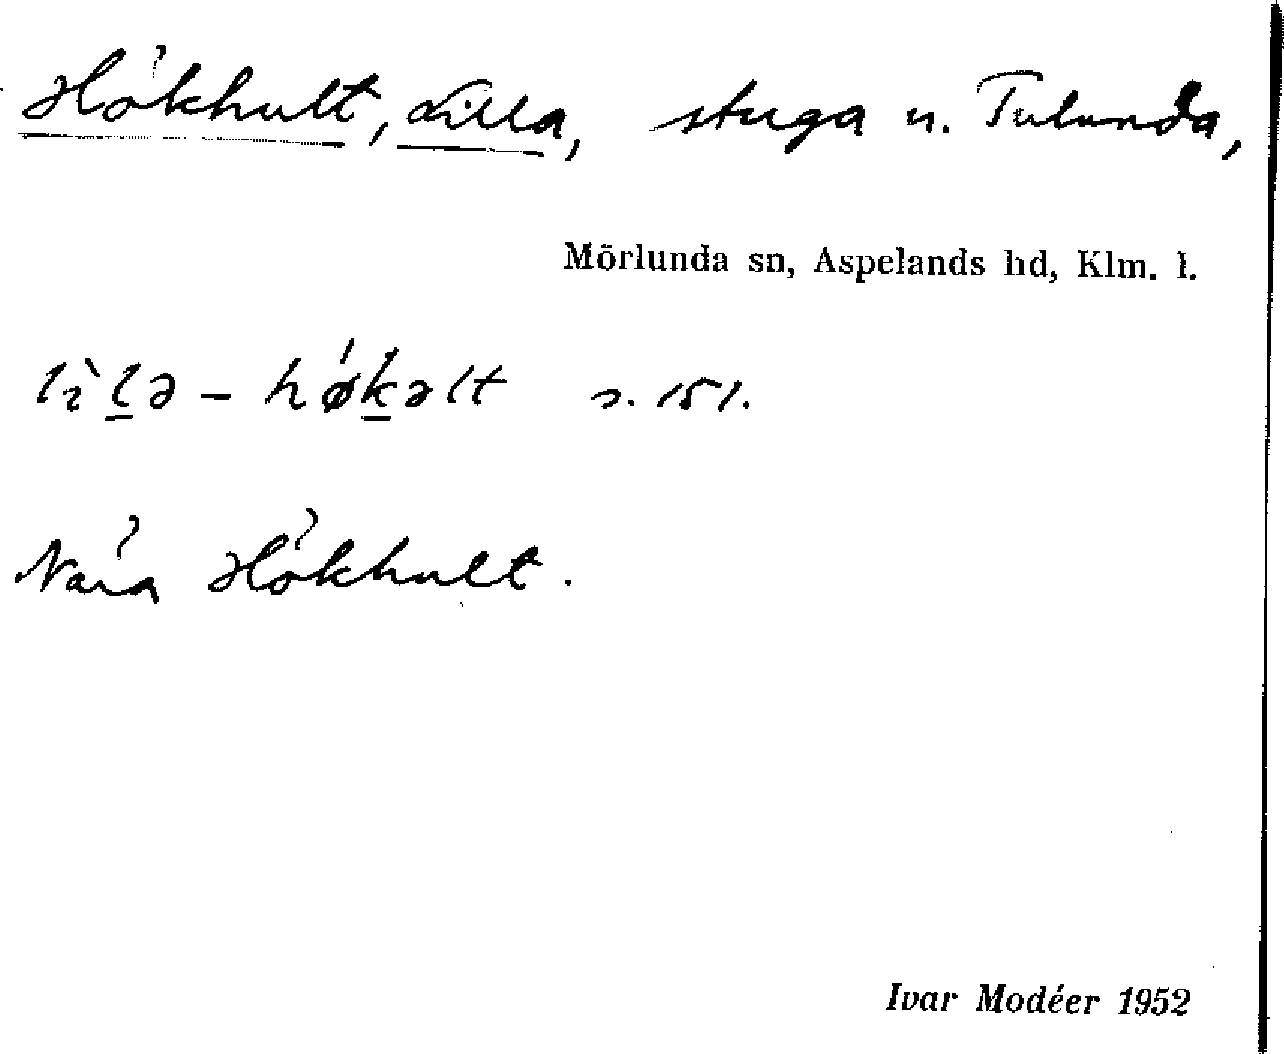 Hökhult, Lilla, stuga u. Tulunda,
Mörlunda sn, Aspelands hd, Klm. l.
lìl̲ə - hǿk̲əlt s. 151.
Nära Hökhult.
Ivar Modéer 1952